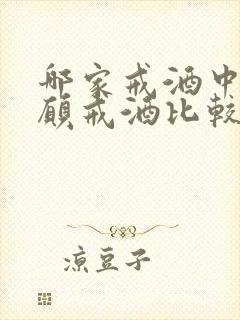 哪家戒酒中
愿戒酒比較
凉豆子